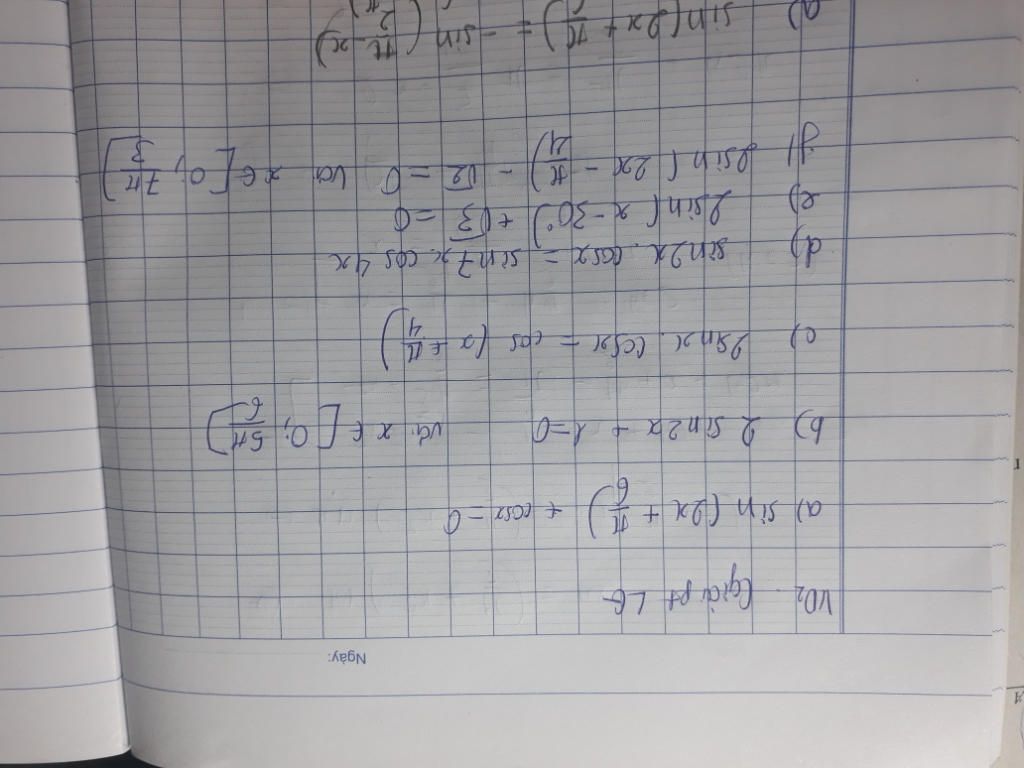 Ngày:
VD2. Giải pt LG
a) sin (2x + π/6) + cosx = 0
b) 2 sin2x + 1 = 0 và x ∈ [0; 5π/6)
c) 2sinx. cosx = cos (x + π/4)
d) sin2x. cosx = sin7x. cos4x
e) 2sin (x - 30°) + √3 = 0
g) 2sin (2x - π/24) - √2 = 0 và x ∈ [0; 7π/3)
a) sin (2x + π/6) = - sin (π/2 - x)